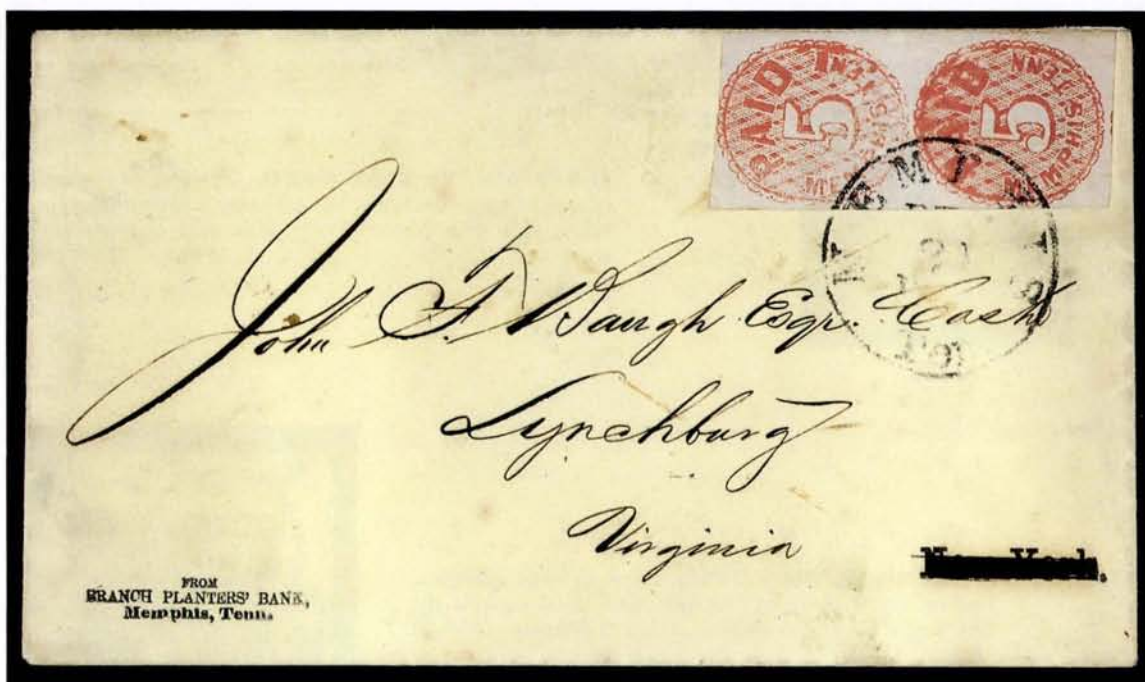 PAID 5 MEMPHIS TENN
PAID 5 MEMPHIS TENN
MEMPHIS
John F. Waugh Esqr. Cash
Lynchburg
Virginia
New York.
FROM
BRANCH PLANTERS' BANK,
Memphis, Tenn.